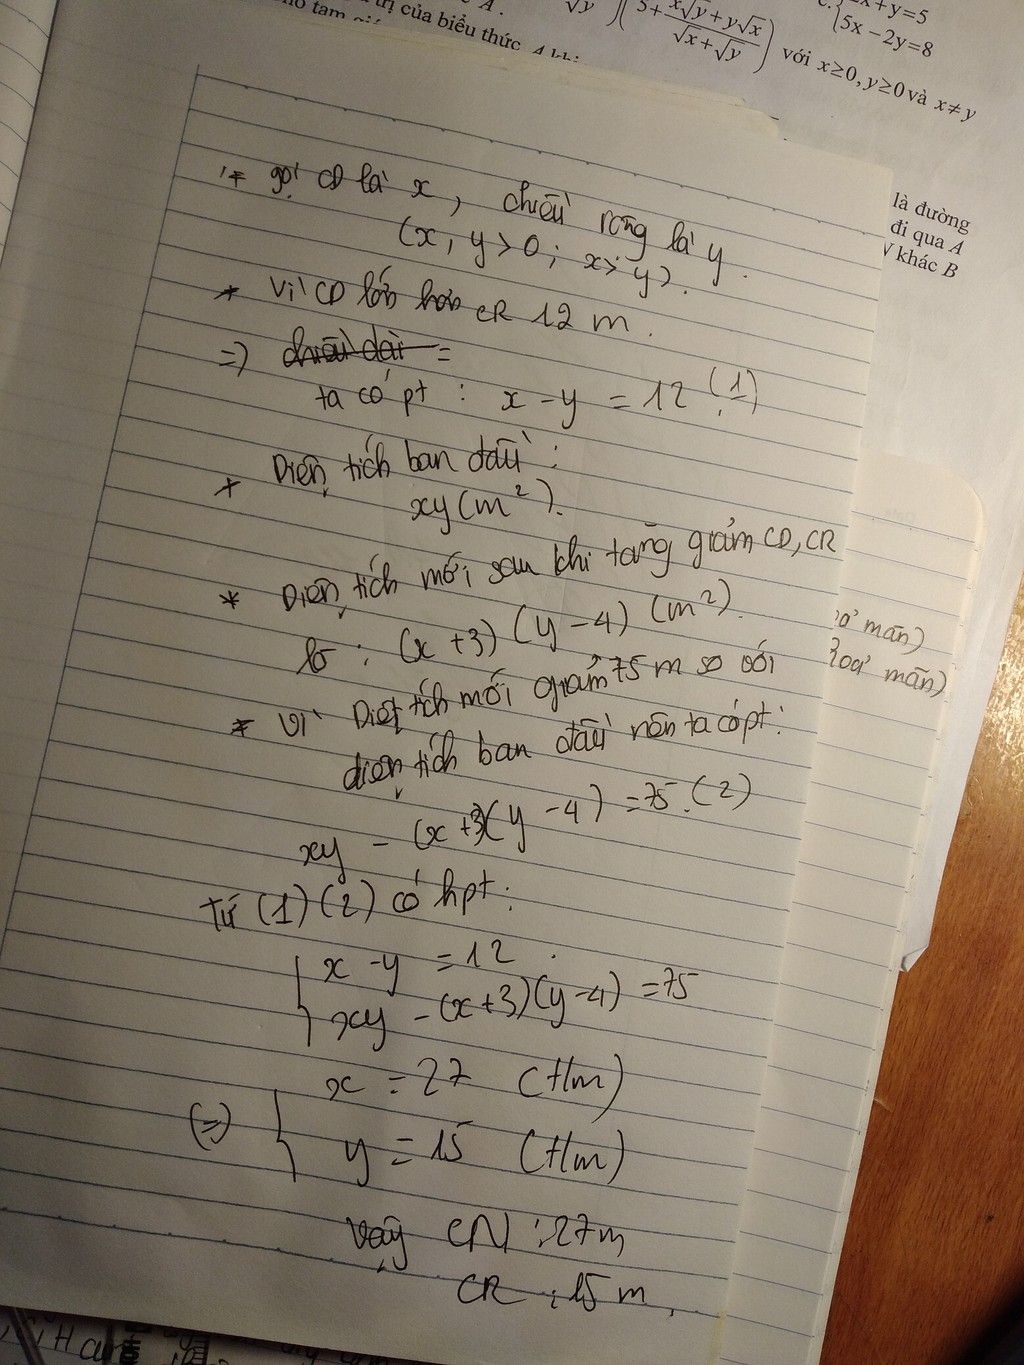 trị của biểu thức A khi
√y)(5+ x√y+y√x / √x+√y) với x≥0, y≥0 và x≠y
x+y=5
5x−2y=8
là đường
đi qua A
khác B
* gọi CD là x, chiều rộng là y.
(x, y > 0; x > y).
* Vì CD lớn hơn CR 12 m.
=> chiều dài =
ta có pt : x - y = 12 (1)
* Diện tích ban đầu :
xy (m²).
* Diện tích mới sau khi tăng giảm CD, CR
là : (x +3) (y - 4) (m²).
* Vì Diệt tích mới giảm 75 m so với
diện tích ban đầu nên ta có pt :
xy - (x +3)(y - 4) = 75. (2)
Từ (1) (2) có hpt :
x - y = 12
xy - (x+3)(y-4) = 75
(=) x = 27 (t/m)
y = 15 (t/m)
Vậy CN : 27m
CR : 15 m,
mãn)
mãn)